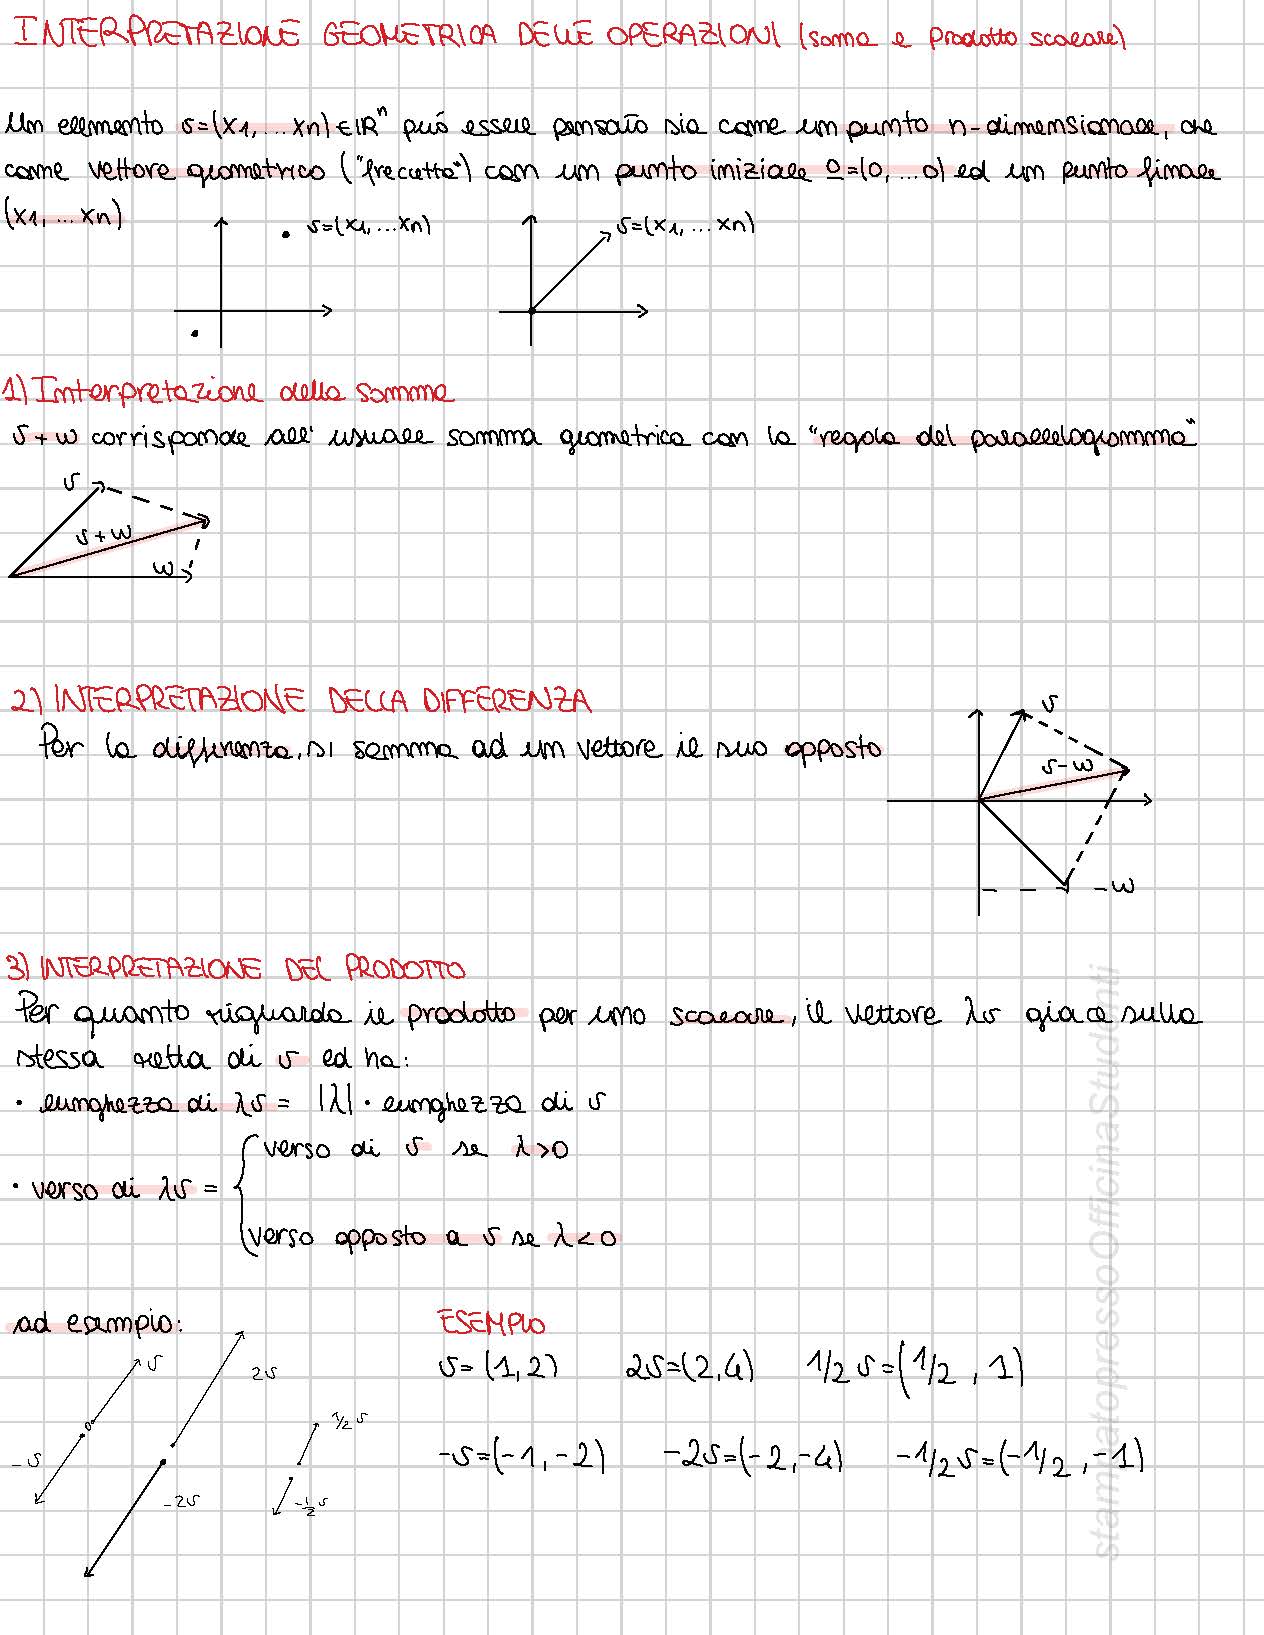 INTERPRETAZIONE GEOMETRICA DELLE OPERAZIONI (soma e prodotto scalare)
Un elemento v=(x1, ... xn) ∈ ℝⁿ può essere pensato sia come un punto n-dimensionale, che
come vettore geometrico ("freccetta") con un punto iniziale 0=(0, ...0) ed un punto finale
(x1, ... xn)
v=(x1, ...xn)
v=(x1, ... xn)
1) Interpretazione della somma
v+w corrisponde all' usuale somma geometrica con la "regola del parallelogramma"
v
v+w
w
2) INTERPRETAZIONE DELLA DIFFERENZA
Per la differenza, si somma ad un vettore il suo opposto
v
v-w
-w
3) INTERPRETAZIONE DEL PRODOTTO
Per quanto riguarda il prodotto per uno scalare, il vettore λv giace sulla
stessa retta di v ed ha:
• lunghezza di λv = |λ| • lunghezza di v
verso di v se λ>0
• verso di λv =
verso opposto a v se λ<0
ad esempio:
v
0
-v
2v
-2v
1/2 v
-1/2 v
ESEMPIO
v=(1,2) 2v=(2,4) 1/2 v=(1/2 , 1)
-v=(-1,-2) -2v=(-2,-4) -1/2 v=(-1/2 ,-1)
stampatopressoOfficinaStudenti